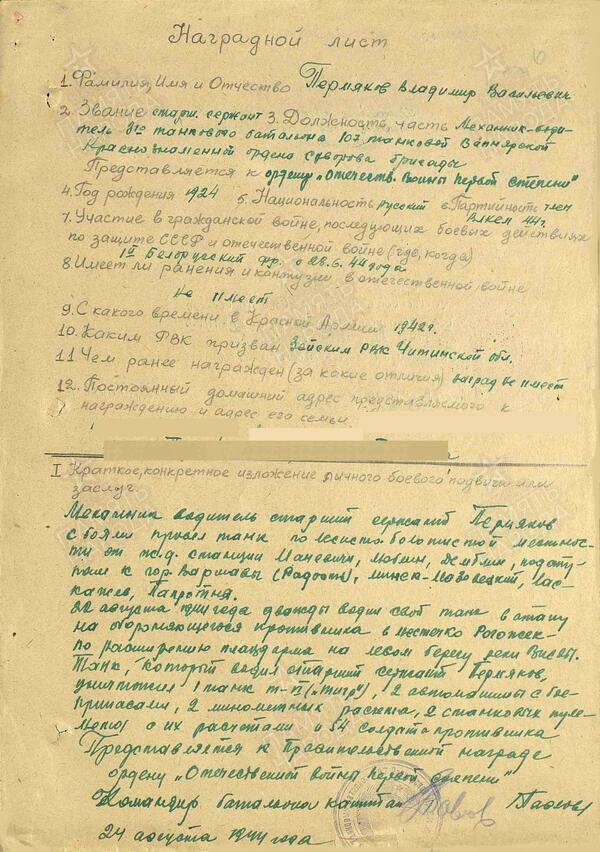 Наградной лист
1. Фамилия, Имя и Отчество Пермяков Владимир Васильевич
2. Звание старш. сержант 3. Должность, часть Механик-води-
тель 81го танкового батальона 107 танковой Вапнярской
Краснознаменной ордена Суворова бригады
Представляется к ордену „Отечеств. войны первой степени"
4. Год рождения 1924 5. Национальность русский 6. Партийность член
ВЛКСМ 44г.
7. Участие в гражданской войне, последующих боевых действиях
по защите СССР и отечественной войне (где, когда)
1й Белорусский фр. с 28.6.44 года
8. Имеет ли ранения и контузии в отечественной войне
Не имеет
9. С какого времени в Красной Армии 1942г.
10. Каким РВК призван Зейским РВК Читинской обл.
11 Чем ранее награжден (за какие отличия) наград не имеет
12. Постоянный домашний адрес представляемого к
награждению и адрес его семьи
I Краткое, конкретное изложение личного боевого подвига или
заслуг.
Механик водитель старший сержант Пермяков
с боями провел танк по лесисто болотистой местнос-
ти от ж.д. станции Маневичи, Люблин, Демблин, подсту-
пам к гор. Варшавы (Радость), Минск-Мазовецкий,
22 августа 1944 года дважды водил свой танк в атаку
на обороняющегося противника в местечко
по расширению плацдарма на левом берегу реки Вислы.
Танк, который водил старший сержант Пермяков,
уничтожил 1 танк т-VI („тигр"), 2 автомашины с бое-
припасами, 2 минометных расчета, 2 станковых пуле-
мета с их расчетами и 54 солдата противника
Представляется к Правительственной награде
ордену „Отечественной войны первой степени"
Командир батальона капитан /Павлов/
24 августа 1944 года